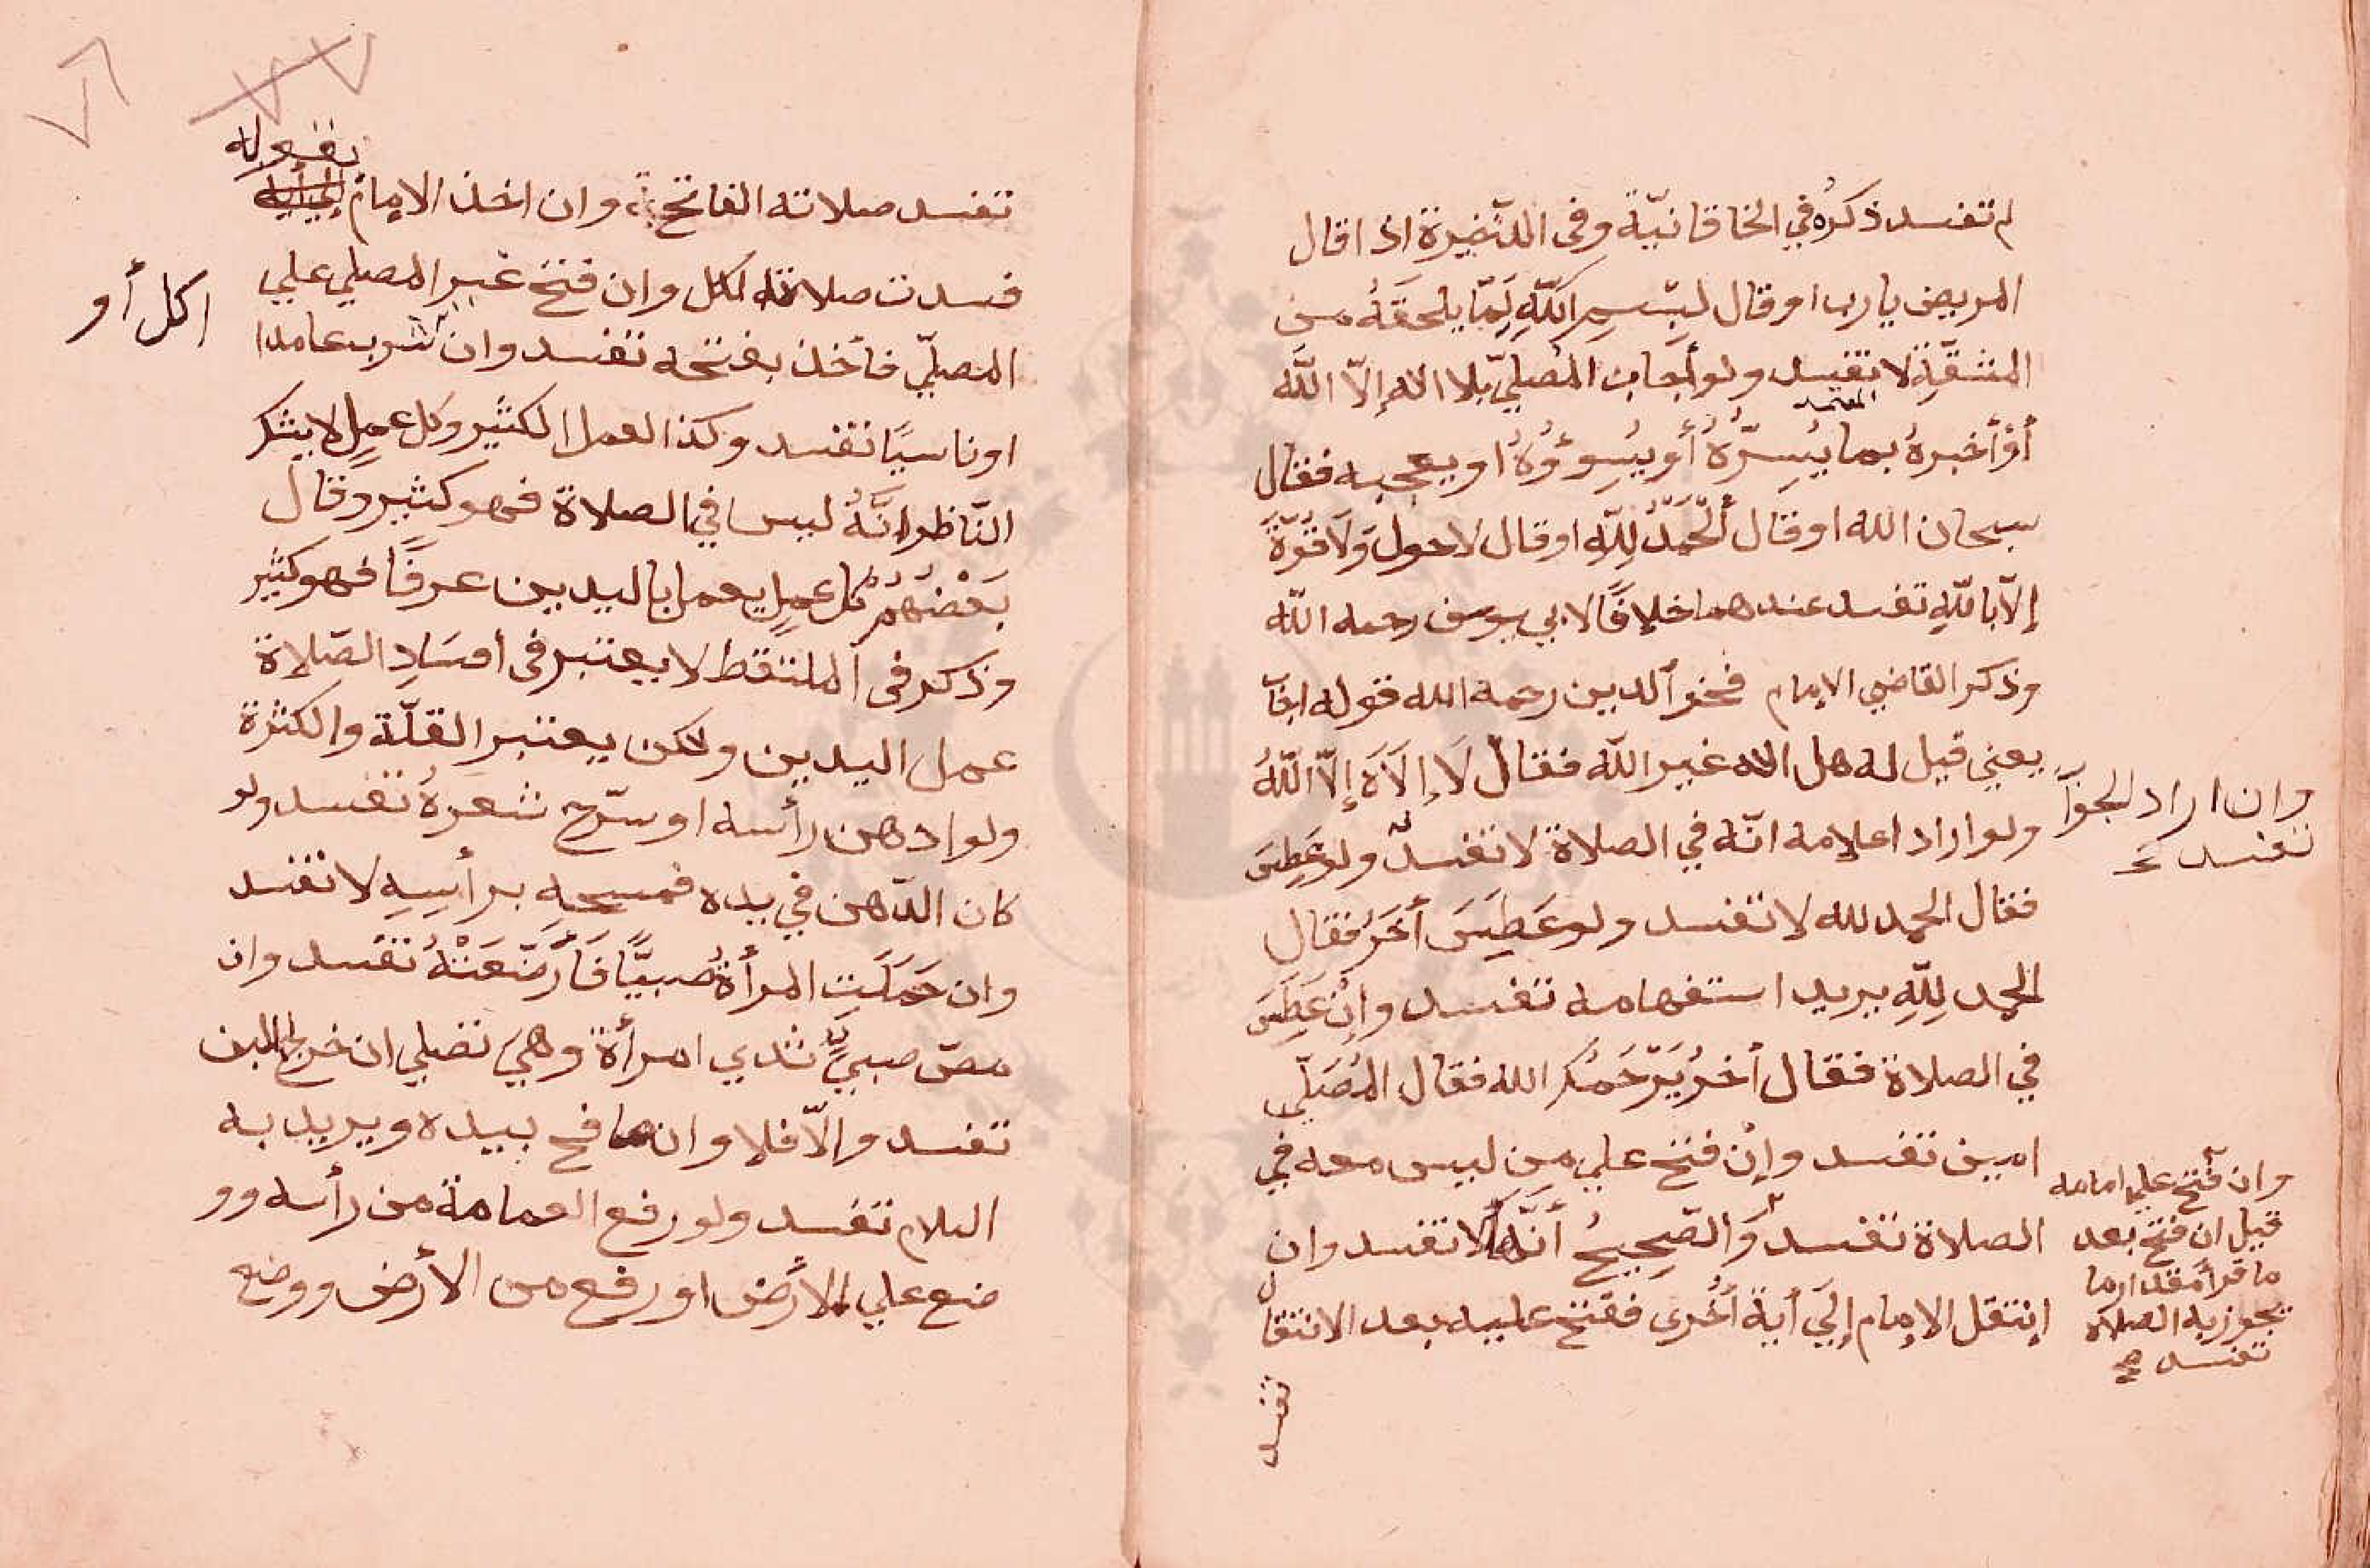 لم تفسد ذكرُه في الخاقانيّة وفى الذّخيرة اذا قال
المريض يا رب او قال بِسْمِ اللّهِ لِمَا يلحَقَهُ من
المشقّةِ لا تفسد ولو أجاب المُصلّي بلا اله إلّا اللّه
المعتمد
أوْ أخبرهُ بما يُسِرّهُ أو يُسِوؤُهُ او يعجبه فقال
سبحان الله او قَال ألْحَمْدُ لِلّهِ او قال لا حول وَلَا قُوّةَ
إلّا باللّهِ تفسد عندهما خلافًا لابي يوسف رحمه اللّه
وذكر القاضي الإمام فخر ألدين رحمه الله قوله
يعني قيل له هل اله غير اللّه فقال لَا إلَاهَ إلَّا اللّهُ
وان اراد الجوآ
تفسد
ولو اراد اعلامه انّه في الصلاة لا تفسد ولو عَطِسَ
فقال الحمد لله لا تفسد ولو عَطِسَ أخَرُ فقال
الحمد لِلّهِ يريد استفهامه تفسد وإنْ عَطِسَ
في الصلاة فقال أخرُ يَرْحَمُكَ الله فقال المُصَلّي
امين تفسد وإنْ فتح علي من ليس معه في
الصلاة تفسد وَالصّحِيحُ أنّه لا تفسد وان
إنتقل الإمام إلَي أية أخُرى ففتح عليه بعد الانتقال
وان فتح علي امامه
قيل ان فتح بعد
ما قرأ مقدار ما
تجوز به الصلاة
تفسد
تفسد
تفسد صلاته الفاتح وان اخذ الإمام
بقوله
فسدت صلاة الكل وان فتح غير المصلي علي
المصلّي فأخذ بفتحه تفسد وان شرب عامدا
اكل أو
او ناسيًا تفسد وكذا العمل الكثير وكل عملٍ لا يشكّ
النّاظر انّهُ ليس في الصلاة فهو كثير وقال
بَعْضُهُمْ كل عملٍ يعمل باليدين عرفًا فهو كثير
وذكر فى الملتقط لا يعتبر فى افسَادِ الصّلاة
عمل اليدين ولكن يعتبر القلّة والكثرة
ولو ادهن رأسه او سرّح شعرهُ تفسد ولو
كان الدّهن في يده فمسحه برأسِهِ لا تفسد
وان حَمَلَتِ المرأةُ صبيًّا فَأرْضَعَتْهُ تفسد وان
مصّ صبيّ ثدي امرأة وهي تصلي ان خرج اللبن
تفسد والّا فلا وان صافح بيده ويريد به
السلام تفسد ولو رفع العمامة من رأسه وو
ضع علي الأرض او رفع من الأرض ووضع